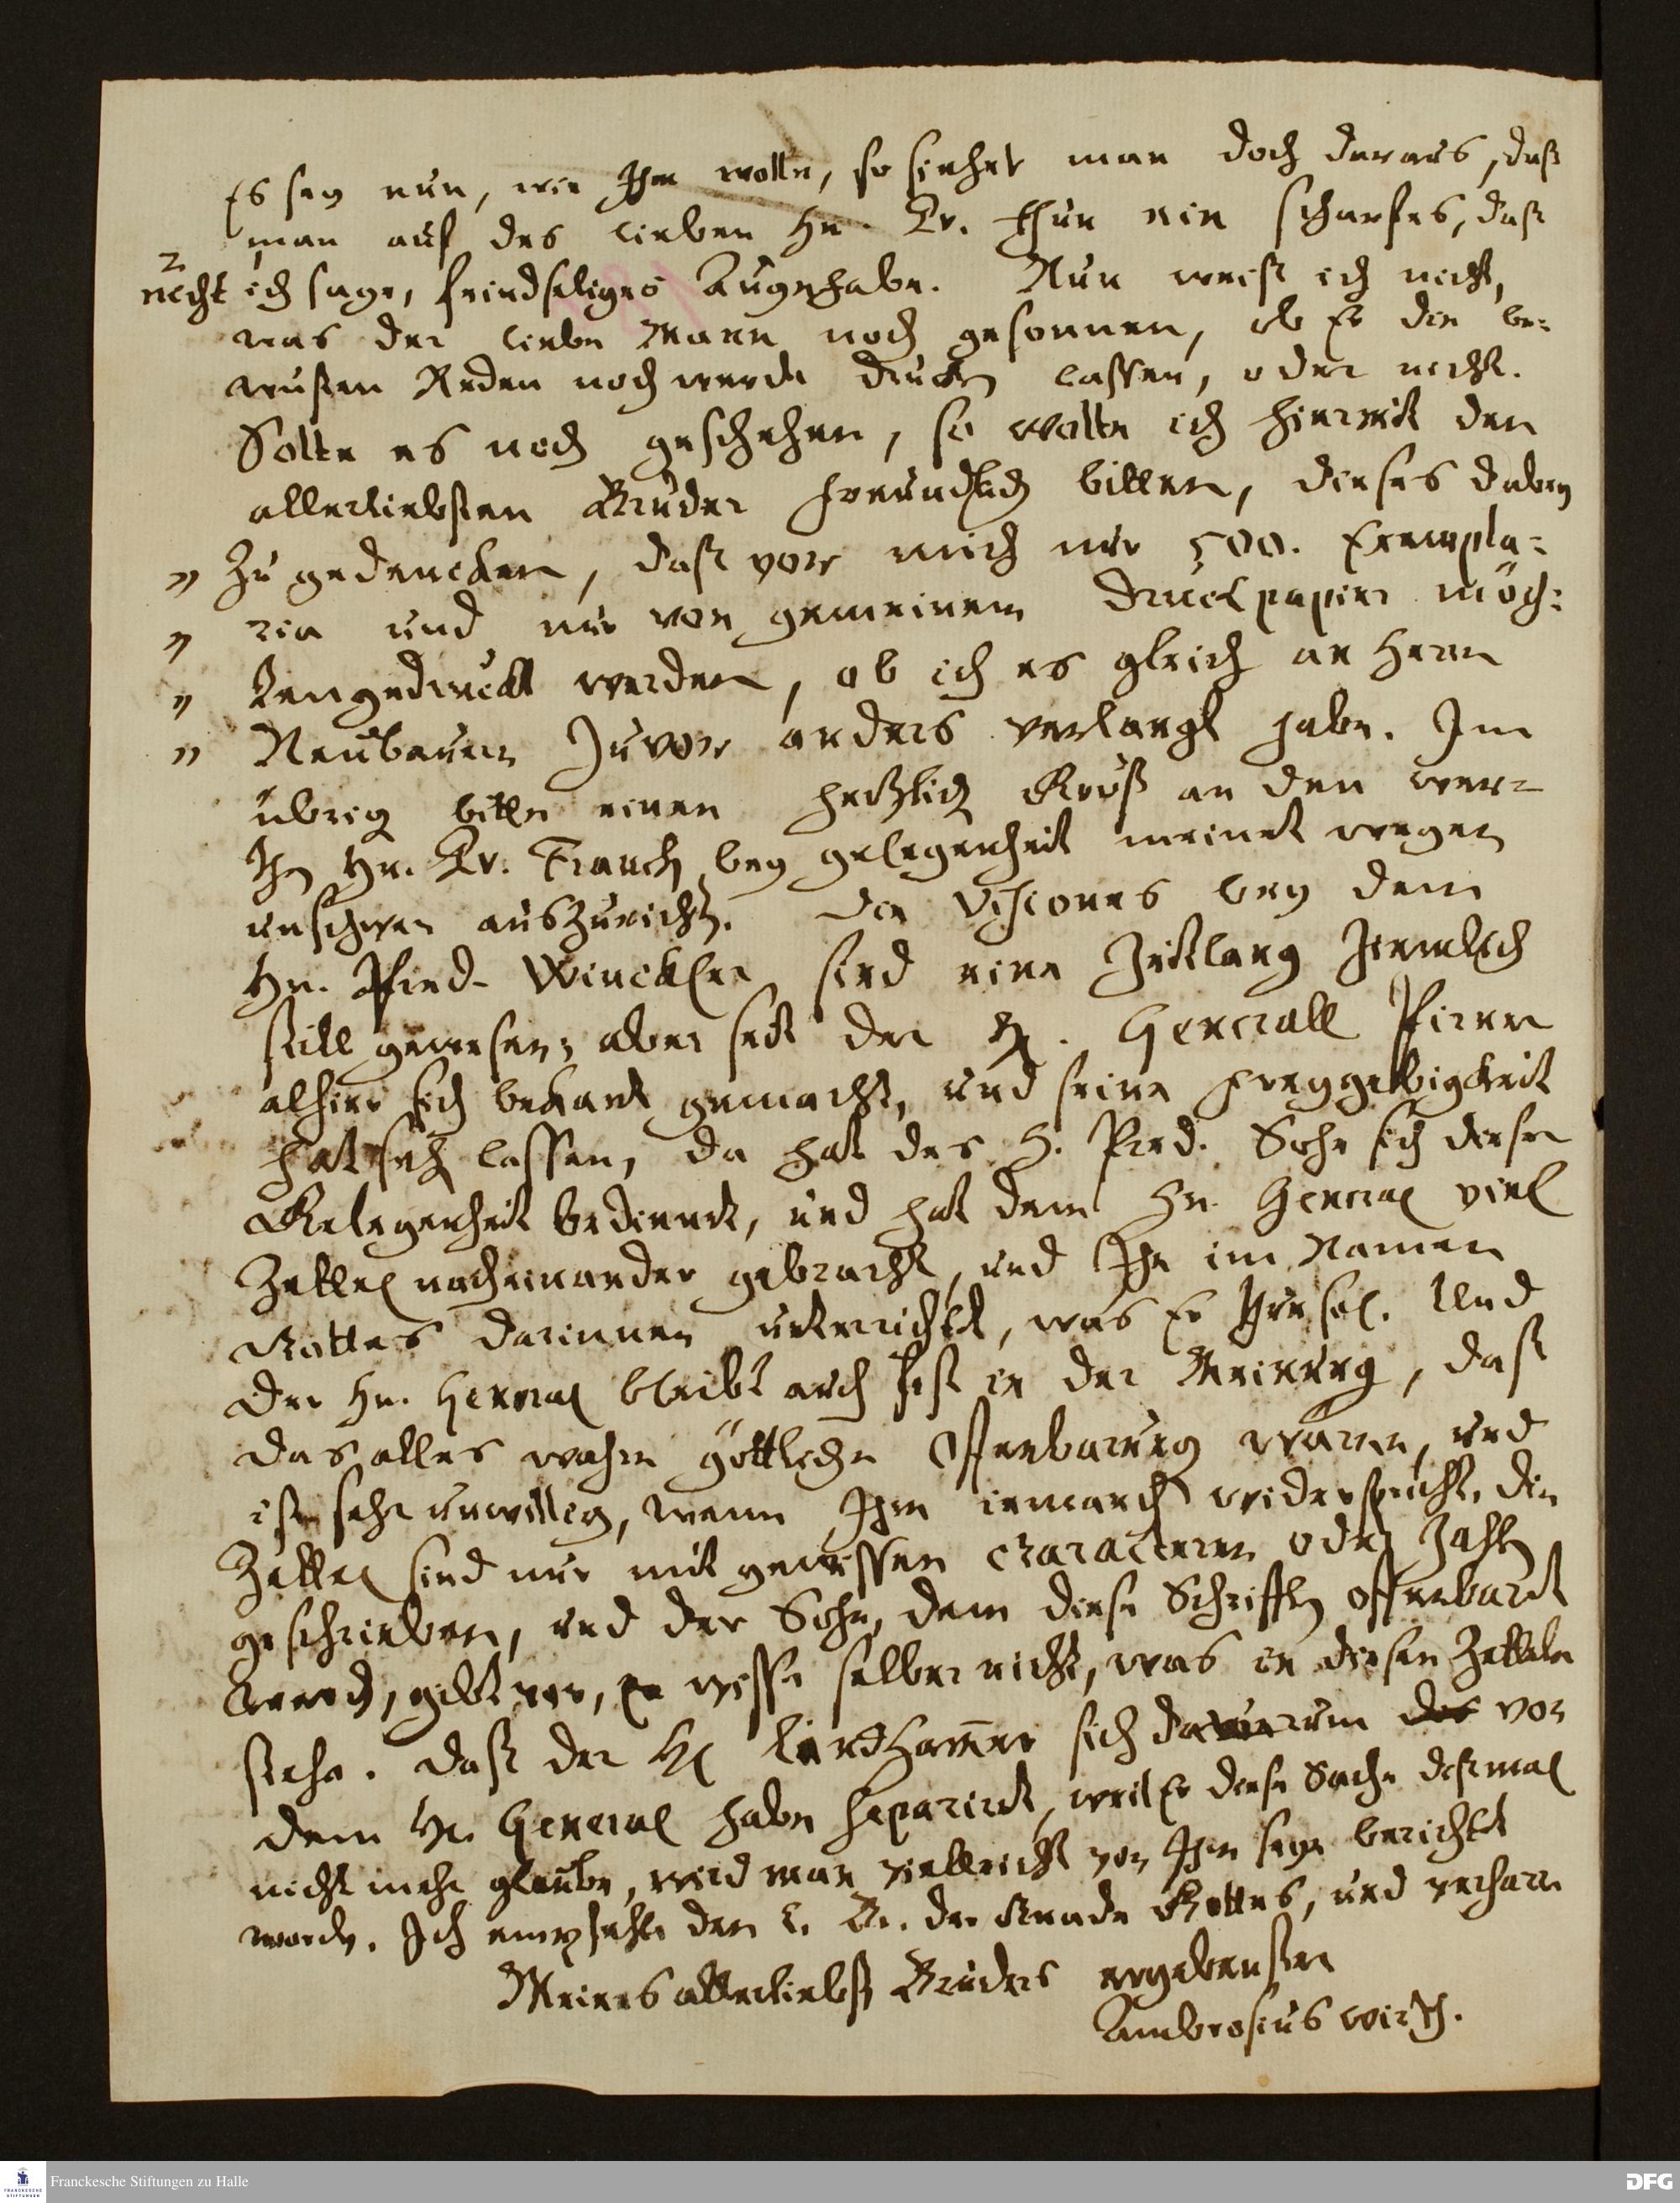 Es sey nun, wie Ihm wolle, so siehet man doch daraus, daß
man auf des lieben Hn. Dr. thun ein scharfes, daß
nicht ich sage, feindseliges Auge habe. Nun weiß ich nicht,
was der liebe Mann noch gesonnen, ob Er die be-
wusten Reden noch werde drucken lassen, oder nicht.
Solte es noch geschehen, so wolte ich hiermit den
allerliebsten Bruder freundlich bitten, dieses dabey
" zu gedencken, daß vor mich nur 500. Exempla-
" ria und nur von gemeinem Druckpapier möch-
" ten gedruckt werden, ob ich es gleich an Herrn
" Neubauern zuvor anders verlangt habe. Im
übrig bitte einen hertzlich Gruß an den wer-
then Hn. Dr. Franck bey gelegenheit meinet wegen
unschwer auszuricht. Die Visiones bey dem
Hn. Pfred. Winckler sind eine Zeitlang ziemlich
still gewesen; aber seit der H. Generall
alhier sich bekant gemacht, und seine freygebigkeit
hat seh lassen, da hat des H. Pred. Sohn sich dieser
Gelegenheit bedienet, und hat dem Hn. General viel
Zettel nacheinander gebracht, und Ihn im Namen
Gottes darinnen unterrichtet, was Er thun sol. Und
der Hn. General bleibt auch fest in der Meinung, daß
das alles wahre göttliche Offenbarung wären, und
ist sehr unwillig, wenn Ihm iemand widerspricht. Die
Zettel sind nur mit gewissen characteren oder Zahlen
geschrieben, und der Sohn, dem diese Schrifften offenbaret
werd, gibt vor, er wisse selber nicht, was in diesen Zetteln
stehe. Daß der H. Lindhamer sich darum von
dem Hn. General habe separiret, weil Er diese Sache destmal
nicht mehr glaube, wird man vielleicht von Ihm seyn berichtet
worden. Ich empfehle den l. Br. der Gnade Gottes, und verharre
Meines allerliebst Bruders ergebenster
Ambrosius Wirth.
Franckesche Stiftungen zu Halle
DFG